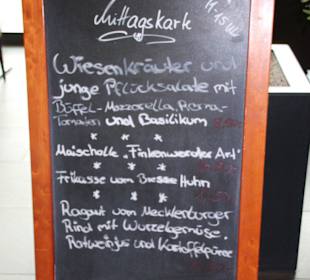 Mittagskart
Wiesenkräuter und
junge Pflücksalade mit
Büffel-Mozzarella, Aroma-
Tomaten und Basilikum
* * *
Maischolle „Finkenwerder Art"
* * *
Frikasse vom Bresse Huhn
Ragout vom Mecklenburger
Rind mit Wurzelgemüse,
Rotweinjus und Kartoffelpüree